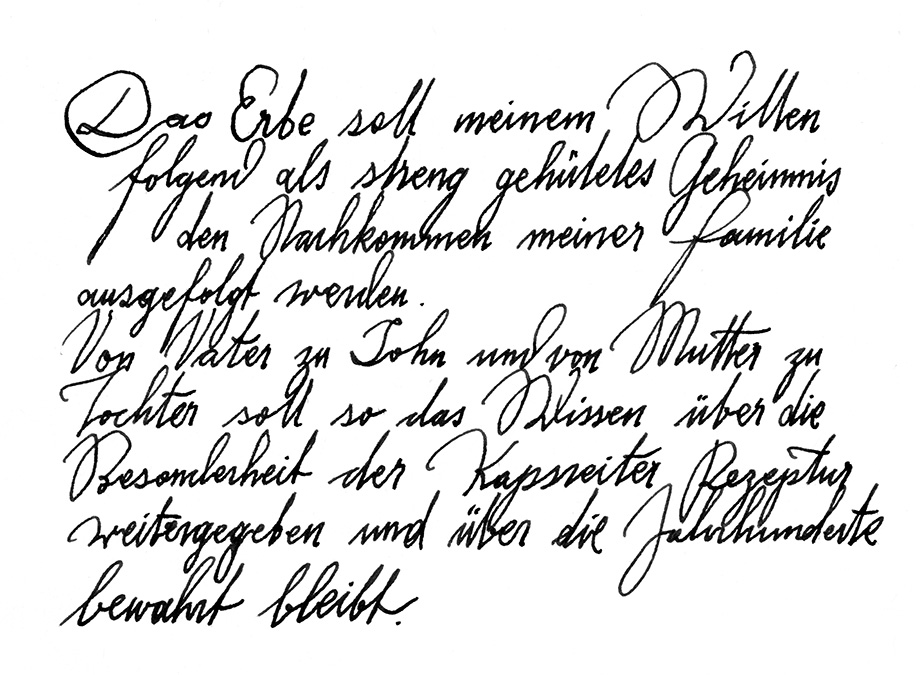 Das Erbe soll meinem Willen
folgend als streng gehütetes Geheimnis
den Nachkommen meiner Familie
ausgefolgt werden.
Von Vater zu Sohn und von Mutter zu
Tochter soll so das Wissen über die
Besonderheit der Kapsreiter Rezeptur
weitergegeben und über die Jahrhunderte
bewahrt bleibt.